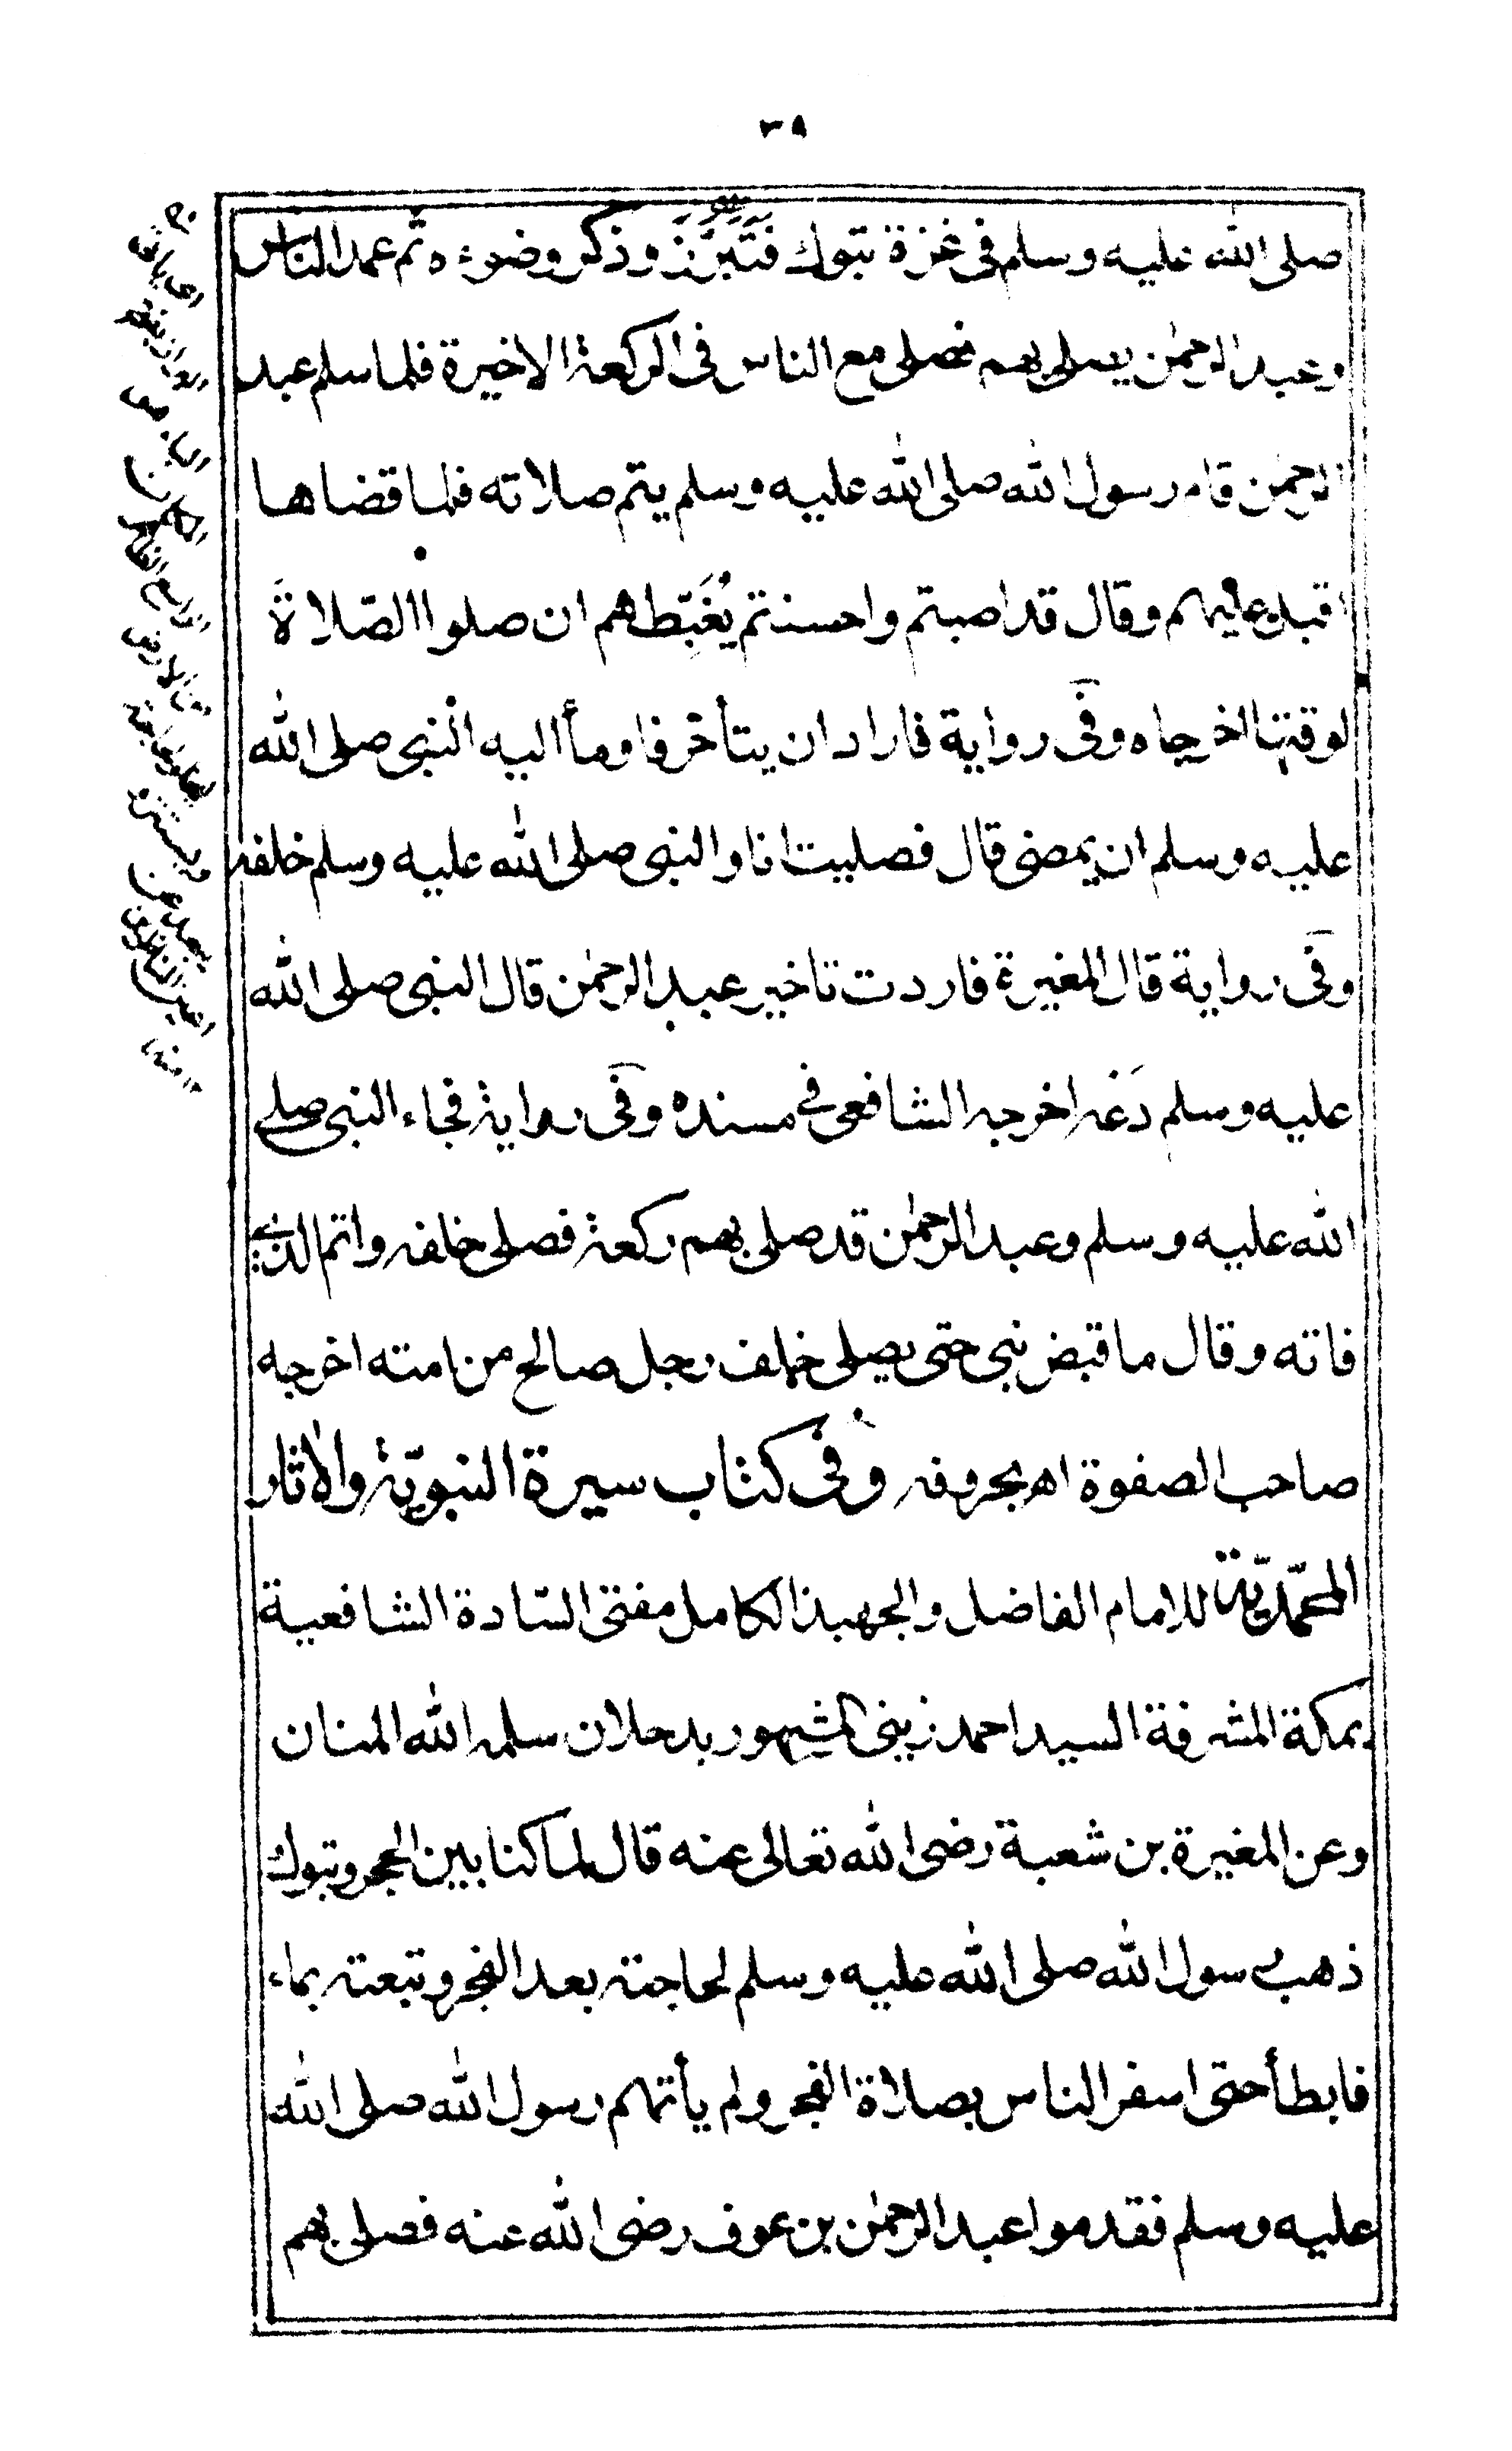 ٣٨
صلى الله عليه وسلم فى غزة تبوك فتبرز وذكر وضوءه ثم عمد الناس
وعبد الرحمٰن يصلى بهم فصلى مع الناس فى الركعة الاخيرة فلما سلم عبد
الرحمٰن قام رسول الله صلى الله عليه وسلم يتم صلاته فلما قضاها
اقبل عليهم وقال قد اصبتم واحسنتم يُغَبِّطهم ان صلوا الصّلاةَ
لوقتها اخرجاه وفى رواية فاراد ان يتأخر فاومأ اليه النبى صلى الله
عليه وسلم ان يمضى قال فصليت انا والنبى صلى الله عليه وسلم خلفه
وفى رواية قال المغيرة فاردت تاخير عبد الرحمٰن قال النبى صلى الله
عليه وسلم دَعْه اخرجه الشافعى فى مسنده وفى رواية فجاء النبى صلى
الله عليه وسلم وعبد الرحمٰن قد صلى بهم ركعة فصلى خلفه واتم الذى
فاته وقال ما قبض نبى حتى يصلى خلف رجل صالح من امته اخرجه
صاحب الصفوة اهـ بحروفه وفى كتاب سيرة النبويّة والاثار
المحمّديّة للامام الفاضل والجهبذ الكامل مفتى السّادة الشافعية
بمكة المشرفة السيد احمد زينى المشهور بدحلان سلمه الله المنان
وعن المغيرة بن شعبة رضى الله تعالى عنه قال لما كنا بين الحجر وتبوك
ذهب رسول الله صلى الله عليه وسلم لحاجته بعد الفجر وتبعته بماء
فابطأ حتى اسفر الناس بصلاة الفجر ولم يأتهم رسول الله صلى الله
عليه وسلم فقدموا عبد الرحمٰن بن عوف رضى الله عنه فصلى بهم